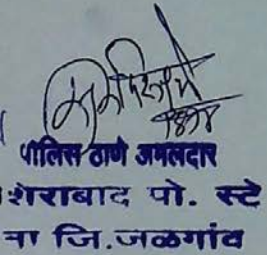 पोलिस ठाणे अमलदार
शिराबाद पो. स्टे
जि.जळगांव